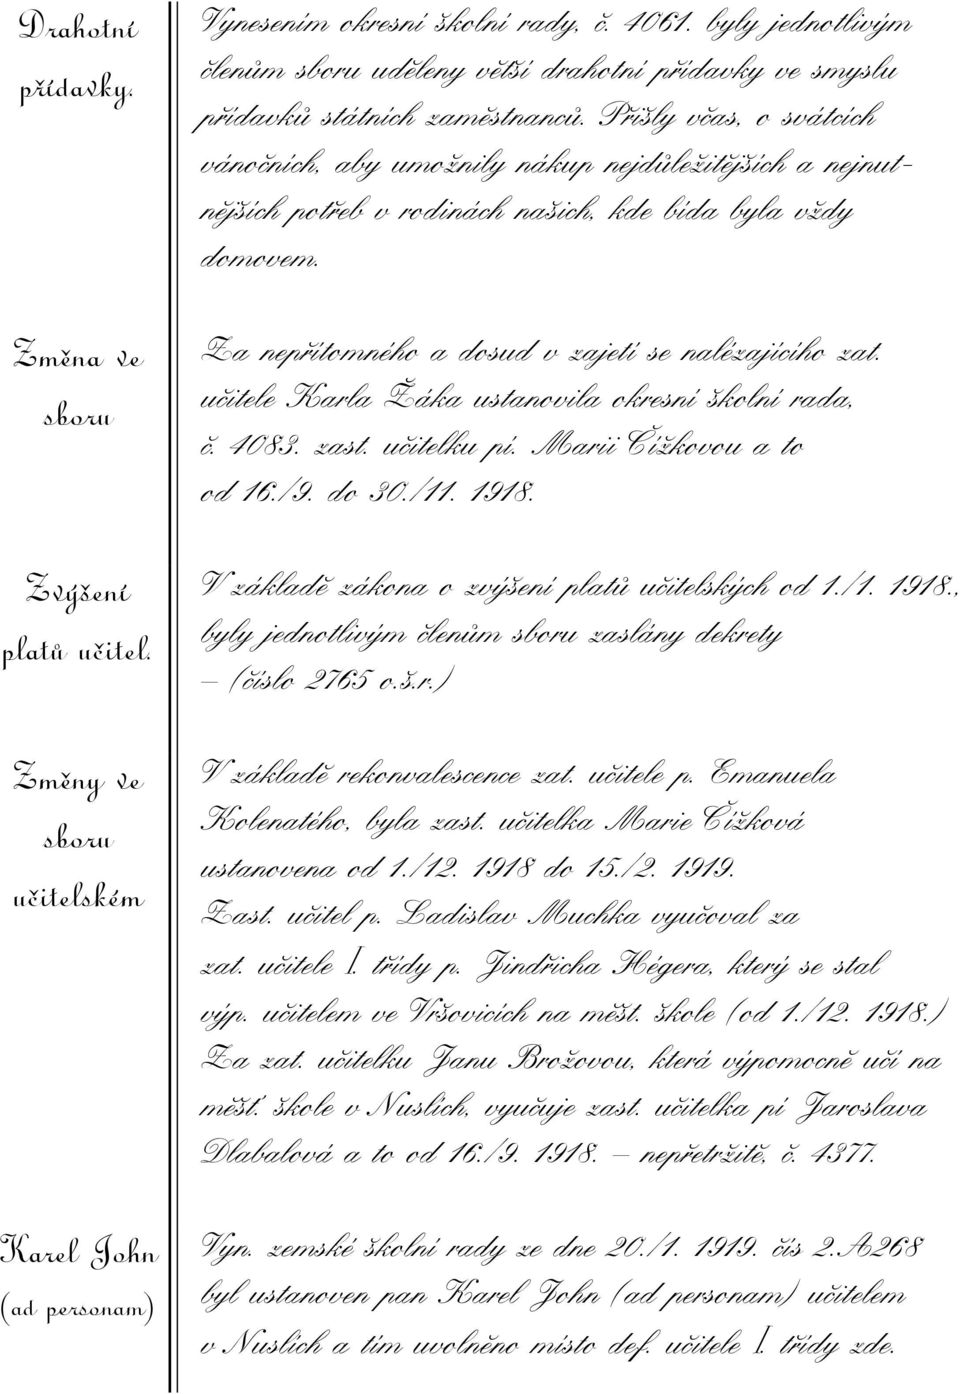 Drahotní
přídavky.
Vynesením okresní školní rady, č. 4061. byly jednotlivým
členům sboru uděleny větší drahotní přídavky ve smyslu
přídavků státních zaměstnanců. Přišly včas, o svátcích
vánočních, aby umožnily nákup nejdůležitějších a nejnut-
nějších potřeb v rodinách našich, kde bída byla vždy
domovem.
Změna ve
sboru
Za nepřítomného a dosud v zajetí se nalézajícího zat.
učitele Karla Žáka ustanovila okresní školní rada,
č. 4083. zast. učitelku pí. Marii Čížkovou a to
od 16./9. do 30./11. 1918.
Zvýšení
platů učitel.
V základě zákona o zvýšení platů učitelských od 1./1. 1918.,
byly jednotlivým členům sboru zaslány dekrety
– (číslo 2765 o.š.r.)
Změny ve
sboru
učitelském
V základě rekonvalescence zat. učitele p. Emanuela
Kolenatého, byla zast. učitelka Marie Čížková
ustanovena od 1./12. 1918 do 15./2. 1919.
Zast. učitel p. Ladislav Muchka vyučoval za
zat. učitele I. třídy p. Jindřicha Hégera, který se stal
výp. učitelem ve Vršovicích na měšt. škole (od 1./12. 1918.)
Za zat. učitelku Janu Brožovou, která výpomocně učí na
měšť. škole v Nuslích, vyučuje zast. učitelka pí Jaroslava
Dlabalová a to od 16./9. 1918. – nepřetržitě, č. 4377.
Karel John
(ad personam)
Vyn. zemské školní rady ze dne 20./1. 1919. čís 2.A268
byl ustanoven pan Karel John (ad personam) učitelem
v Nuslích a tím uvolněno místo def. učitele I. třídy zde.